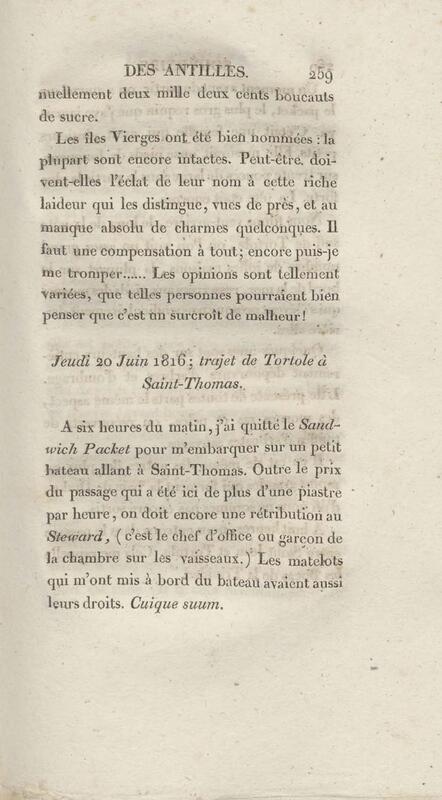 DES ANTILLES. 259
nuellement deux mille deux cents boucauts
de sucre.
Les îles Vierges ont été bien nommées : la
plupart sont encore intactes. Peut-être doi-
vent-elles l'éclat de leur nom à cette riche
laideur qui les distingue, vues de près, et au
manque absolu de charmes quelconques. Il
faut une compensation à tout; encore puis-je
me tromper...... Les opinions sont tellement
variées, que telles personnes pourraient bien
penser que c'est un surcroît de malheur!
Jeudi 20 Juin 1816; trajet de Tortole à
Saint-Thomas.
A six heures du matin, j'ai quitté le Sand-
wich Packet pour m'embarquer sur un petit
bateau allant à Saint-Thomas. Outre le prix
du passage qui a été ici de plus d'une piastre
par heure, on doit encore une rétribution au
Steward, (c'est le chef d'office ou garçon de
la chambre sur les vaisseaux.) Les matelots
qui m'ont mis à bord du bateau avaient aussi
leurs droits. Cuique suum.